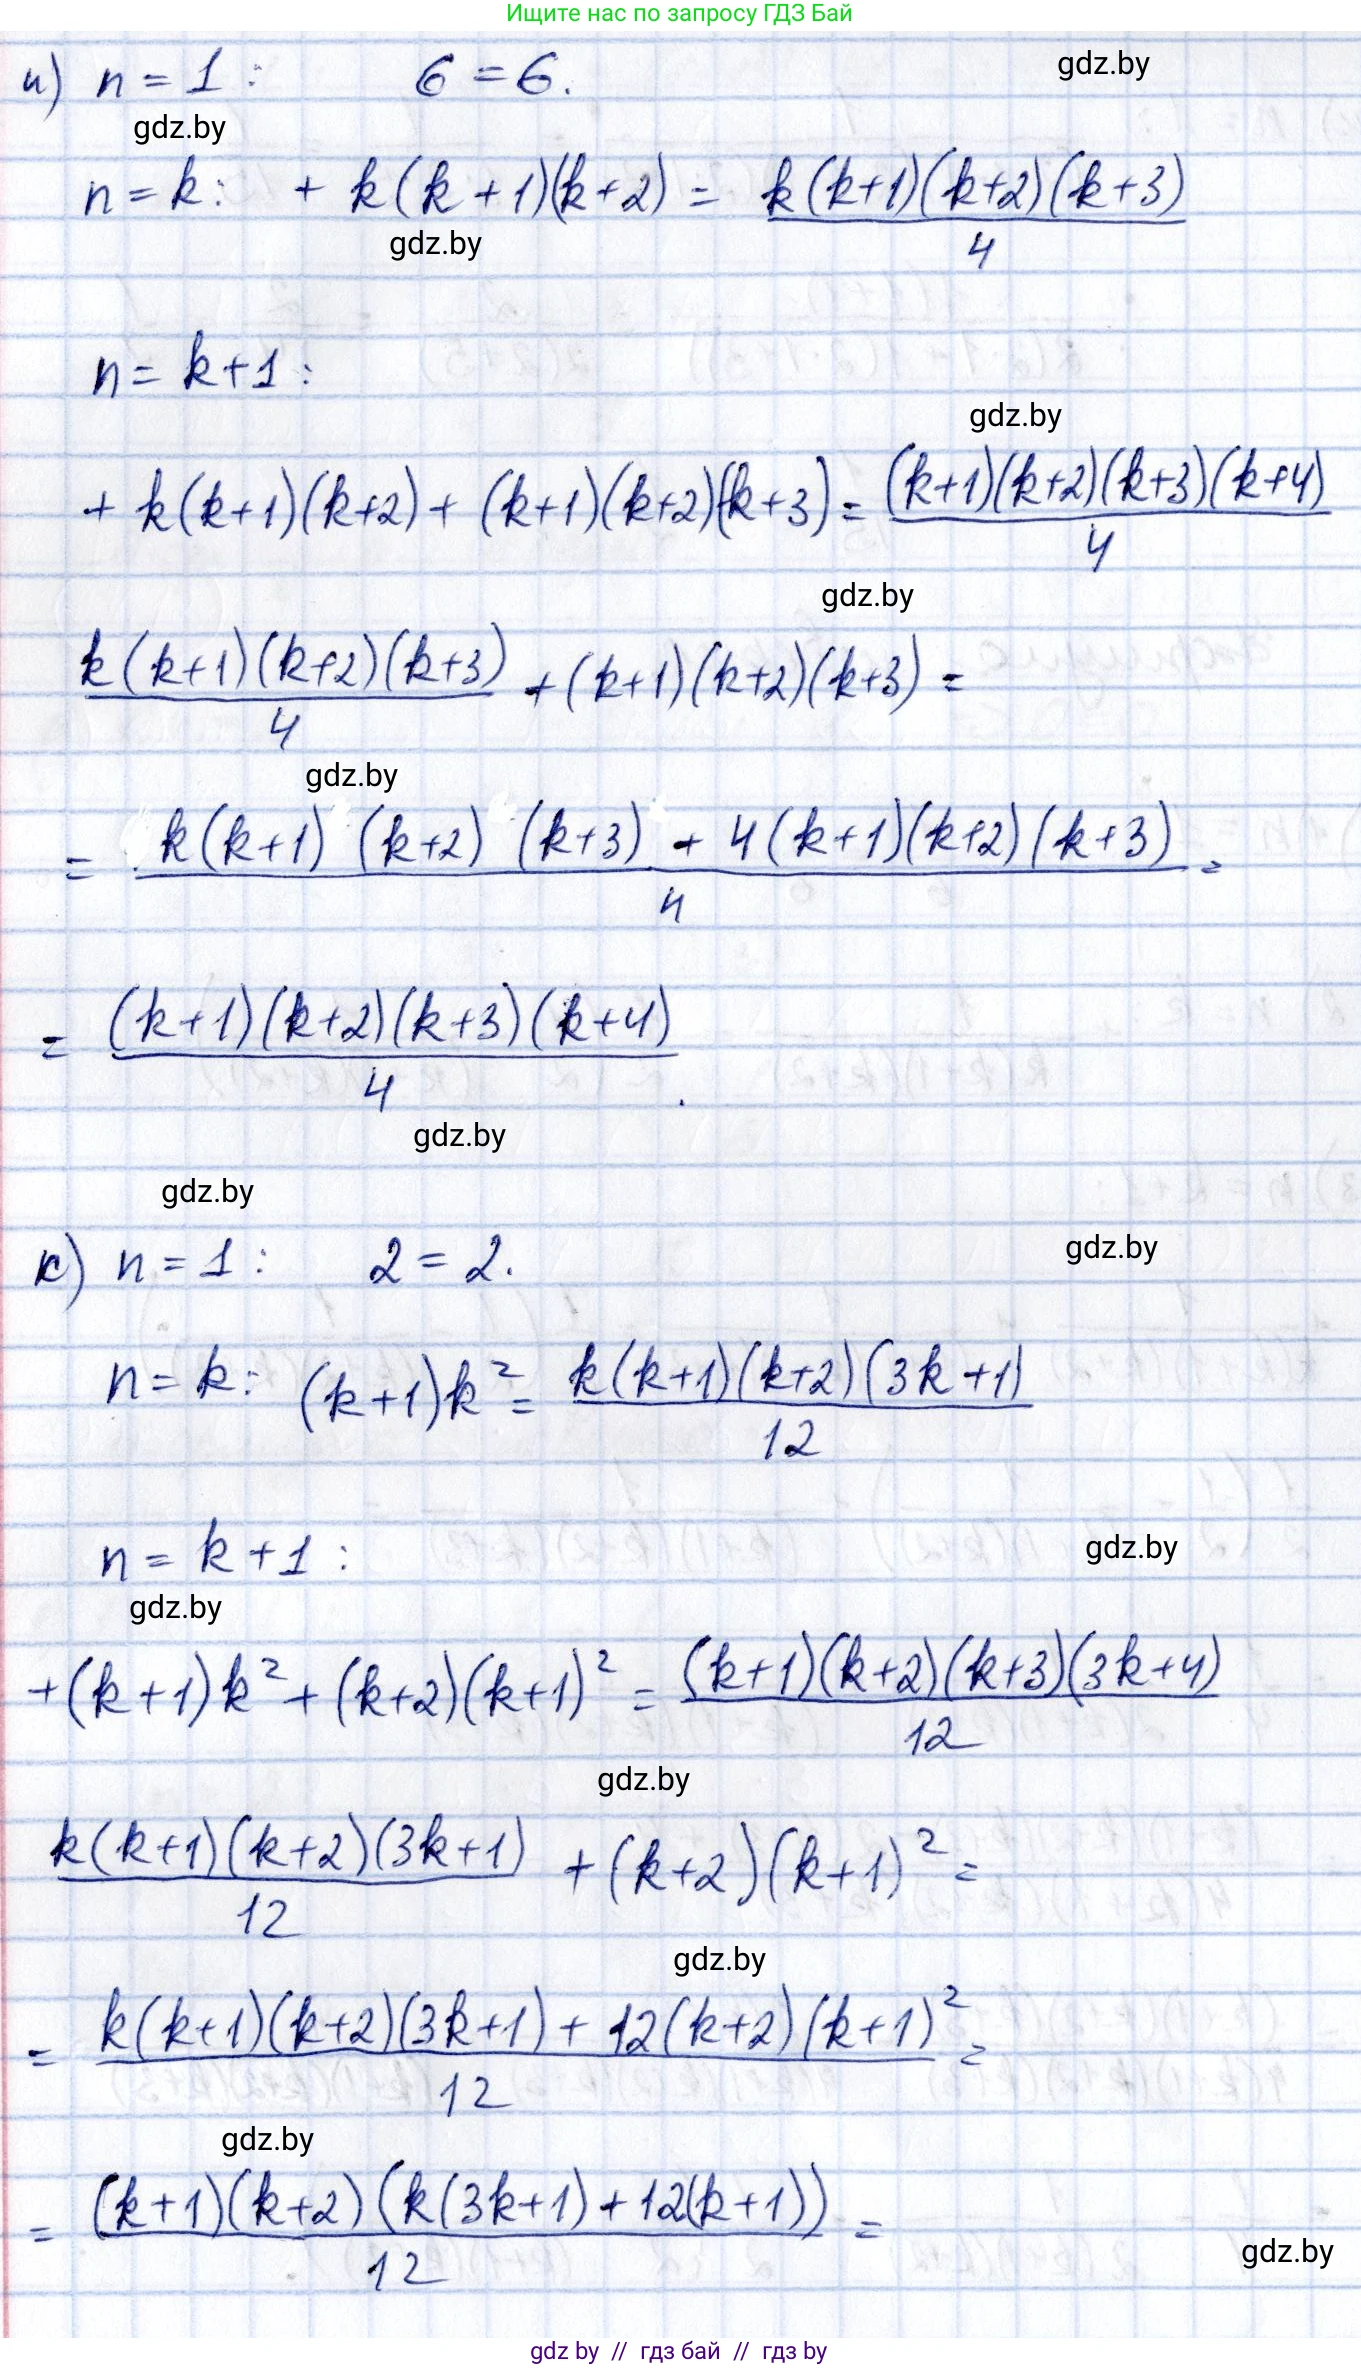 Ищите нас по запросу ГДЗ Бай
и) n = 1 : 6 = 6.
gdz.by
gdz.by
n = k: + k(k+1)(k+2) = k(k+1)(k+2)(k+3)/4
gdz.by
n = k+1 :
gdz.by
+ k(k+1)(k+2) + (k+1)(k+2)(k+3) = (k+1)(k+2)(k+3)(k+4)/4
gdz.by
k(k+1)(k+2)(k+3)/4 + (k+1)(k+2)(k+3) =
gdz.by
= k(k+1)(k+2)(k+3) + 4(k+1)(k+2)(k+3)/4 =
= (k+1)(k+2)(k+3)(k+4)/4.
gdz.by
gdz.by
к) n = 1 : 2 = 2.
gdz.by
n = k: (k+1)k² = k(k+1)(k+2)(3k+1)/12
n = k+1 :
gdz.by
gdz.by
+(k+1)k² + (k+2)(k+1)² = (k+1)(k+2)(k+3)(3k+4)/12
gdz.by
k(k+1)(k+2)(3k+1)/12 + (k+2)(k+1)² =
gdz.by
= k(k+1)(k+2)(3k+1) + 12(k+2)(k+1)²/12 =
gdz.by
= (k+1)(k+2)(k(3k+1) + 12(k+1))/12 =
gdz.by
gdz by // гдз бай // гдз by